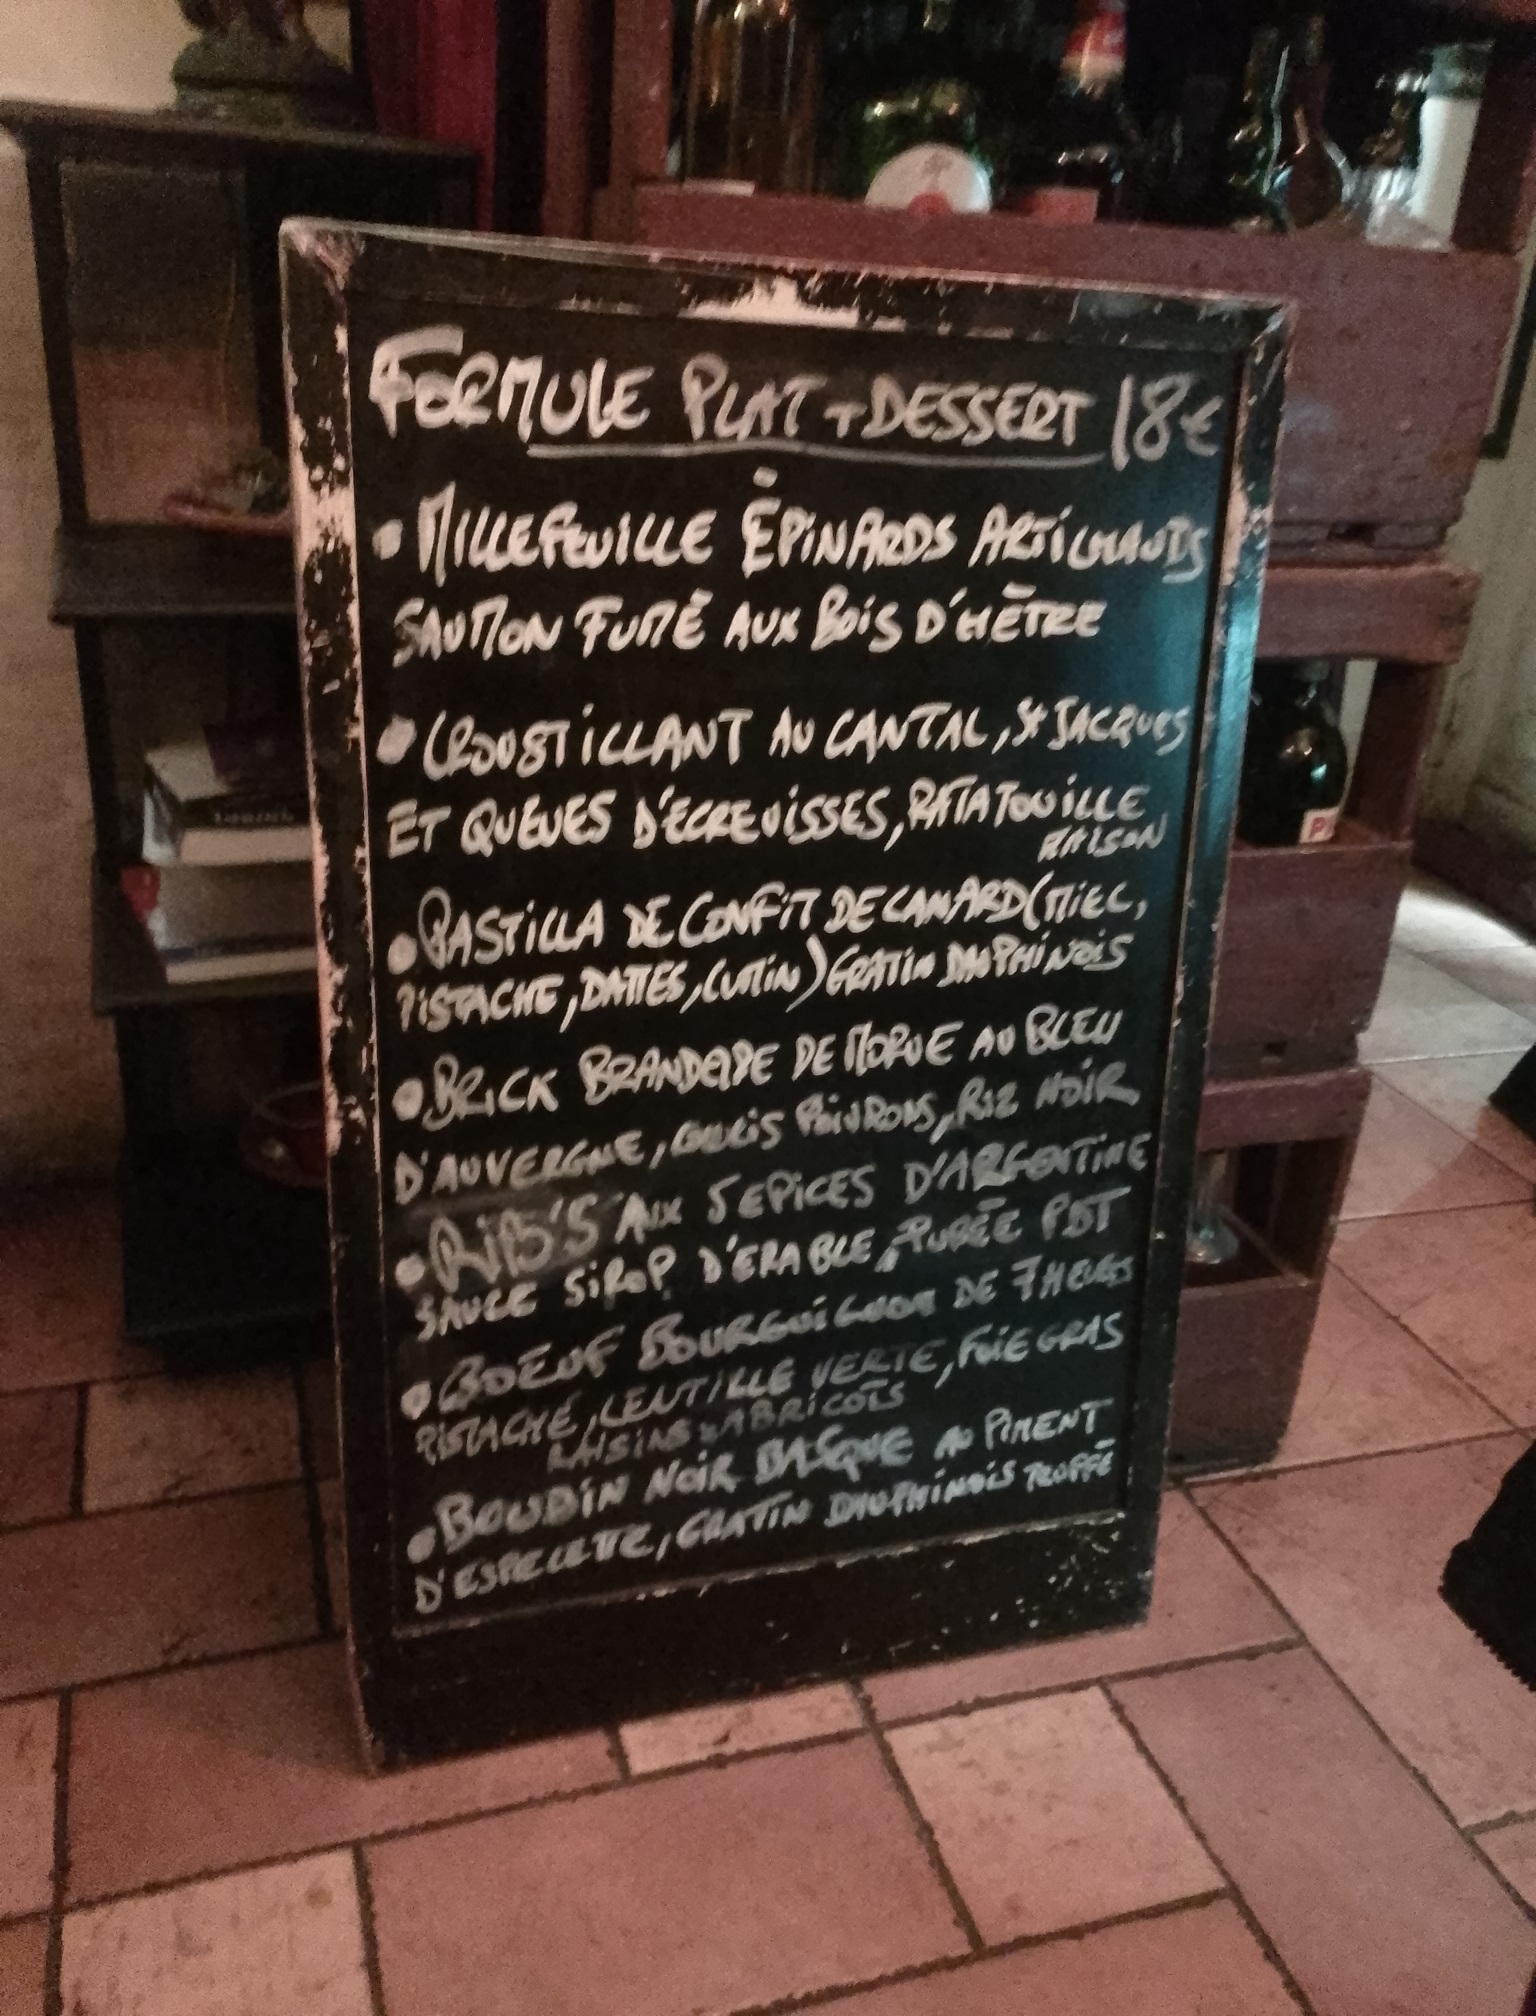 FORMULE PLAT + DESSERT 18€
• MILLEFEUILLE ÉPINARDS ARTICHAUTS
SAUMON FUMÉ AUX BOIS D'HÊTRE
• CROUSTILLANT AU CANTAL, St JACQUES
ET QUEUES D'ECREVISSES, RATATOUILLE
MAISON
• PASTILLA DE CONFIT DE CANARD (MIEL,
PISTACHE, DATTES, CUMIN) GRATIN DAUPHINOIS
• BRICK BRANDADE DE MORUE AU BLEU
D'AUVERGNE, COULIS POIVRONS, RIZ NOIR
• RIB'S AUX 5 EPICES D'ARGENTINE
SAUCE SIROP D'ERABLE, PURÉE PDT
• BOEUF BOURGUIGNON DE 7 HEURES
PISTACHE, LENTILLE VERTE, FOIE GRAS
RAISINS & ABRICOTS
• BOUDIN NOIR BASQUE AU PIMENT
D'ESPELETTE, GRATIN DAUPHINOIS TRUFFÉ